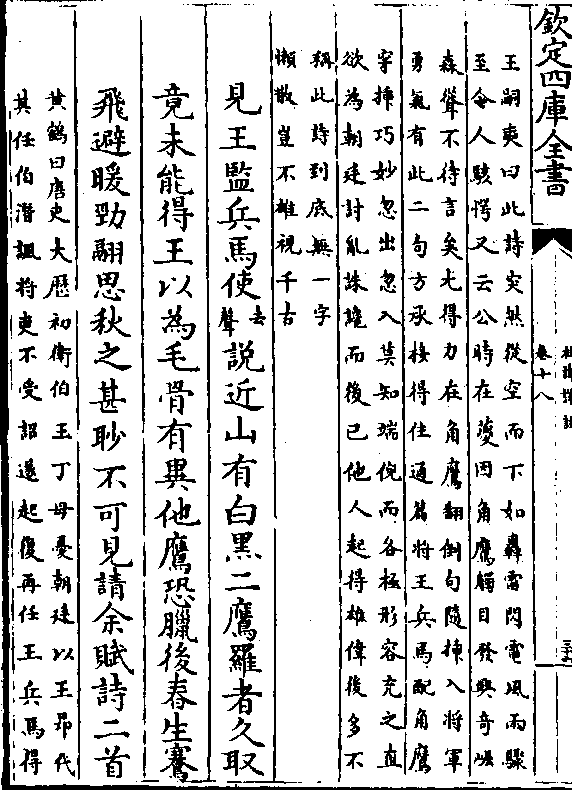 欽定四庫全書
卷十八
王嗣奭曰此詩突然從空而下如轟雷閃電風雨驟
至令人駭愕又云公時在夔因角鷹觸目發興奇崛
森聳不待言矣尤得力在角鷹翻倒句隨揷入將軍
勇氣有此二句方承接得住通篇將王兵馬配角鷹
穿揷巧妙忽出忽入莫知端倪而各極形容充之直
欲為朝廷討亂誅䜛而後已他人起得雄偉後多不
稱此詩到底無一字
懶散豈不雄視千古
見王監兵馬使去聲說近山有白黑二鷹羅者久取
竟未能得王以為毛骨有異他鷹恐臘後春生騫
飛避暖勁翮思秋之甚眇不可見請余賦詩二首
黄鶴曰唐史大歷初衛伯玉丁母憂朝廷以王昂代
其任伯潛諷将吏不受詔遂起復再任王兵馬得